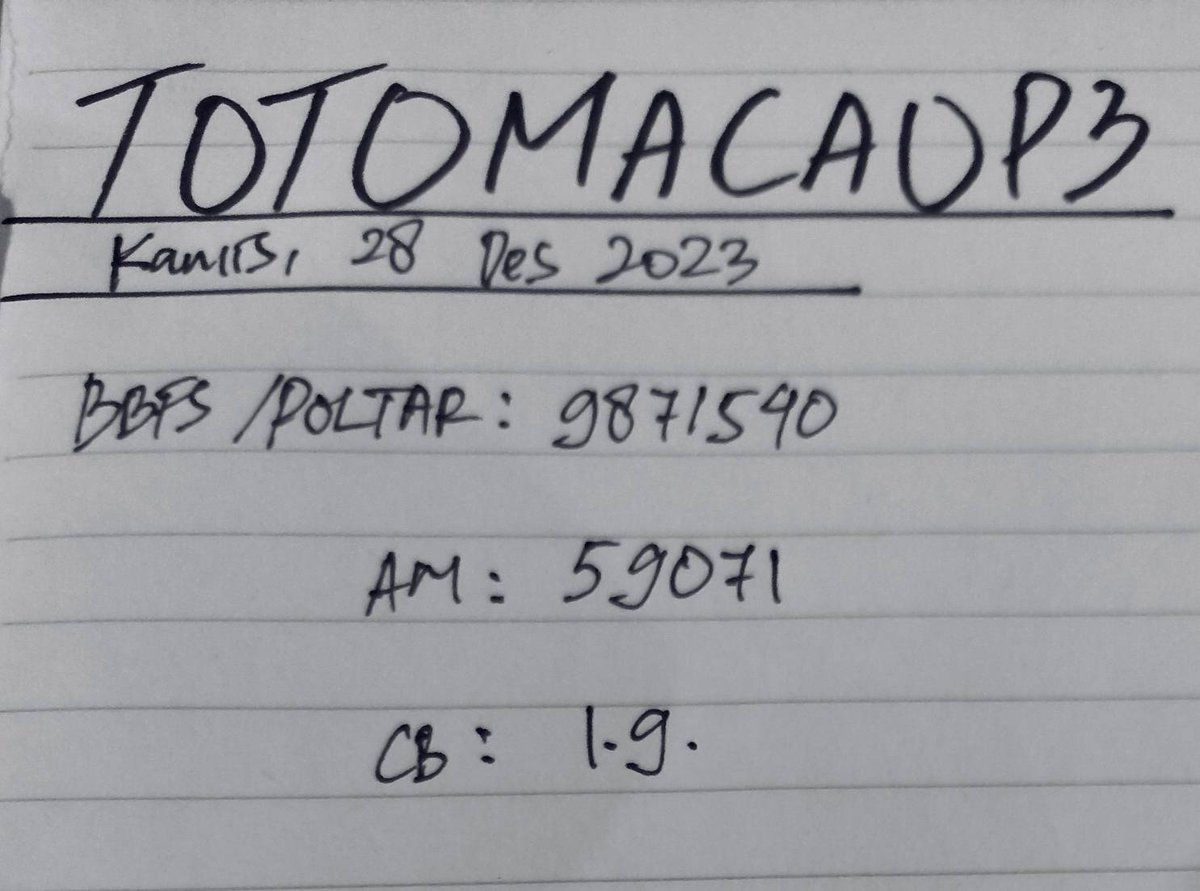 TOTOMACAUP3
Kamis, 28 Des 2023
BBFS /POLTAR: 9871540
AM: 59071
CB: 1.9.